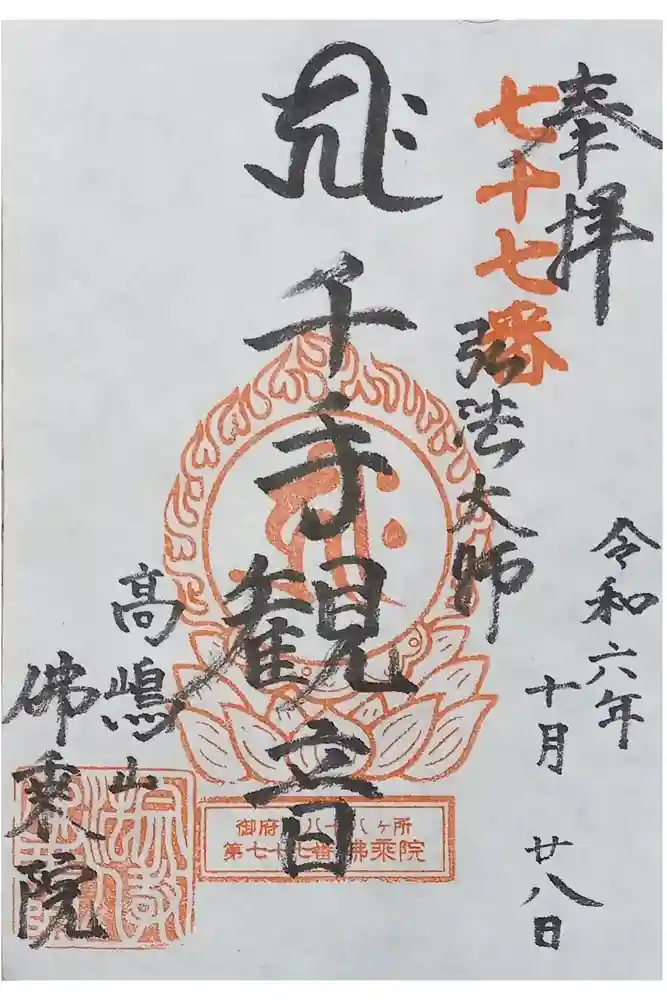 奉拝
七十七番
弘法大師
令和六年
十月
廿八日
千手観音
高嶋山
佛乗院
御府内八十八ヶ所
第七十七番 佛乗院